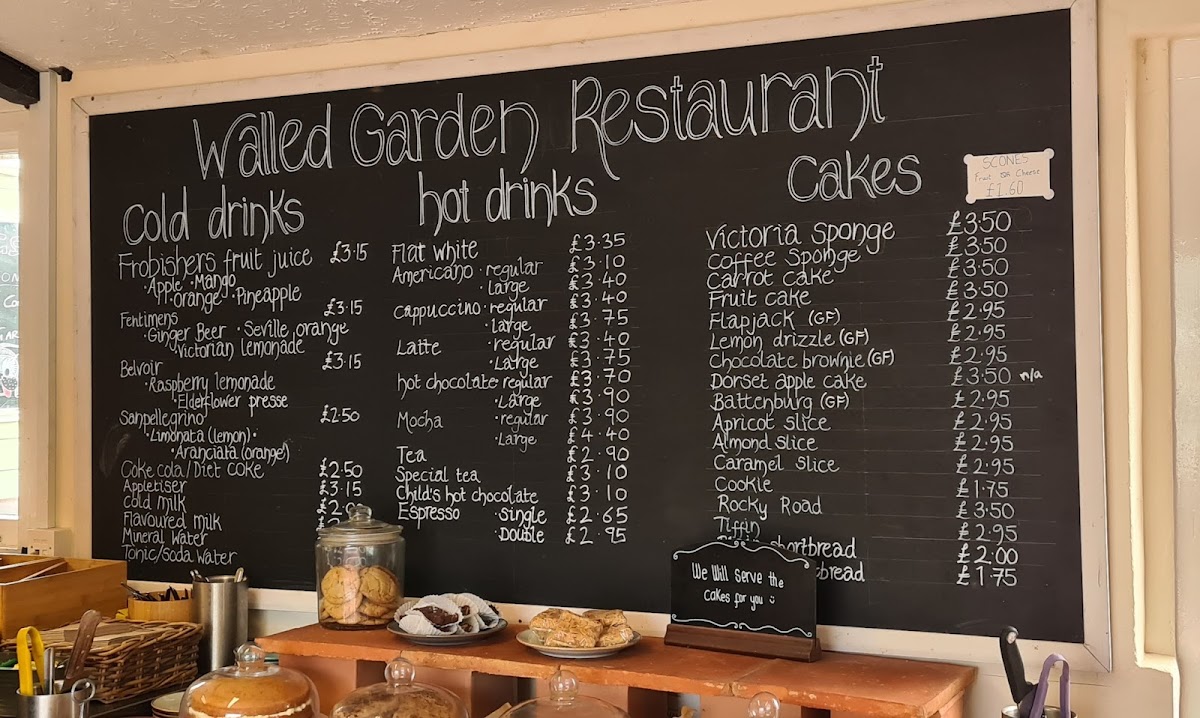 Walled Garden Restaurant
Cold drinks
Frobishers fruit juice £3.15
·Apple ·Mango
·Orange ·Pineapple
£3.15
Fentimens
·Ginger Beer ·Seville orange
·Victorian lemonade
£3.15
Belvoir
·Raspberry lemonade
·Elderflower presse
Sanpellegrino £2.50
·Limonata (lemon)·
·Aranciata (orange)
Coke cola/Diet coke £2.50
Appletiser £3.15
Cold milk
Flavoured milk
Mineral water
Tonic/soda water
hot drinks
Flat white £3.35
Americano ·regular £3.10
·large £3.40
cappuccino ·regular £3.40
·large £3.75
Latte ·regular £3.40
·Large £3.75
hot chocolate ·regular £3.70
·Large £3.90
Mocha ·regular £3.90
·Large £4.40
Tea £2.90
Special tea £3.10
Child's hot chocolate £3.10
Espresso ·single £2.65
·Double £2.95
Cakes
SCONES
Fruit OR Cheese
£1.60
Victoria Sponge £3.50
Coffee Sponge £3.50
Carrot cake £3.50
Fruit cake £3.50
Flapjack (GF) £2.95
Lemon drizzle (GF) £2.95
Chocolate brownie (GF) £2.95
Dorset apple cake £3.50 n/a
Battenburg (GF) £2.95
Apricot slice £2.95
Almond slice £2.95
Caramel slice £2.95
Cookie £1.75
Rocky Road £3.50
Tiffin £2.95
shortbread £2.00
£1.75
We will serve the
cakes for you